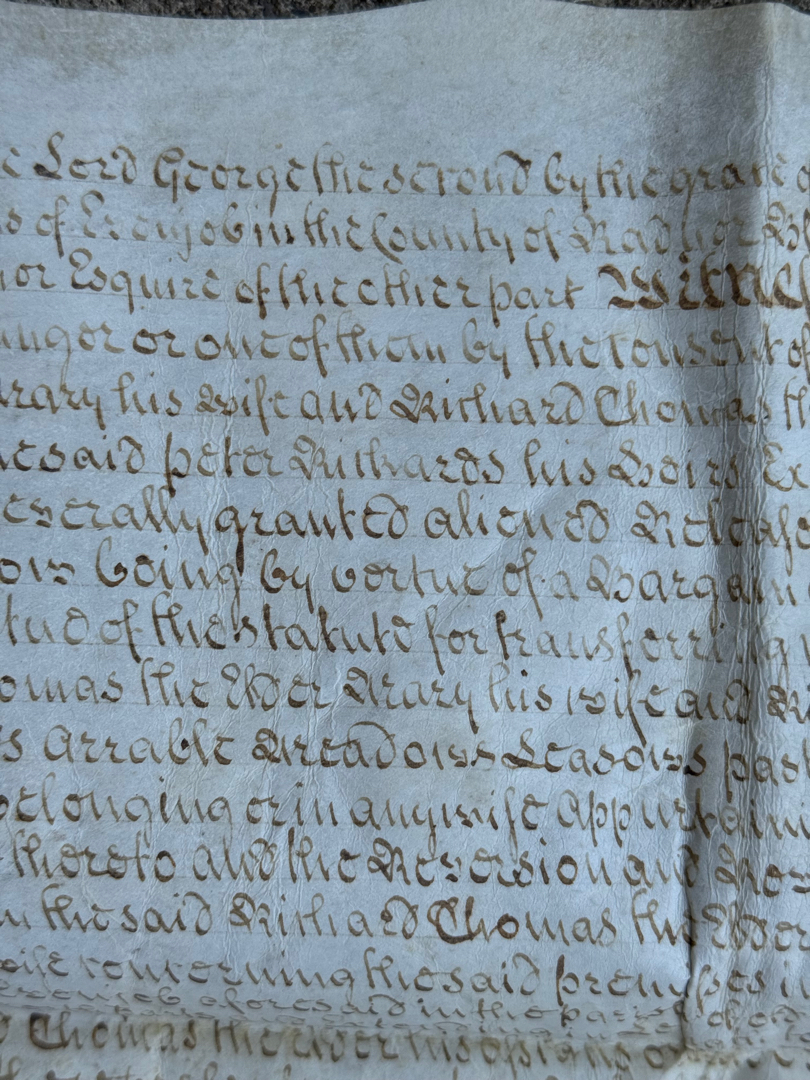 Lord George the second by the grace
of Evenjob in the County of Radnor
Esquire of the other part Witnes
unger or one of them by the consent of
Mary his wife and Richard Thomas th
said peter Richards his Heirs Ex
everally granted aliened Releafe
being by vertue of a Bargain
tue of the statute for transferring
omas the Elder Mary his wife and R
s arrable Meadows Leasows past
belonging or in anywise appurtain
thereto and the Reversion and Rev
the said Richard Thomas the Elder
wife concerning the said premisses
aforesaid in the parish of
Thomas the elder his